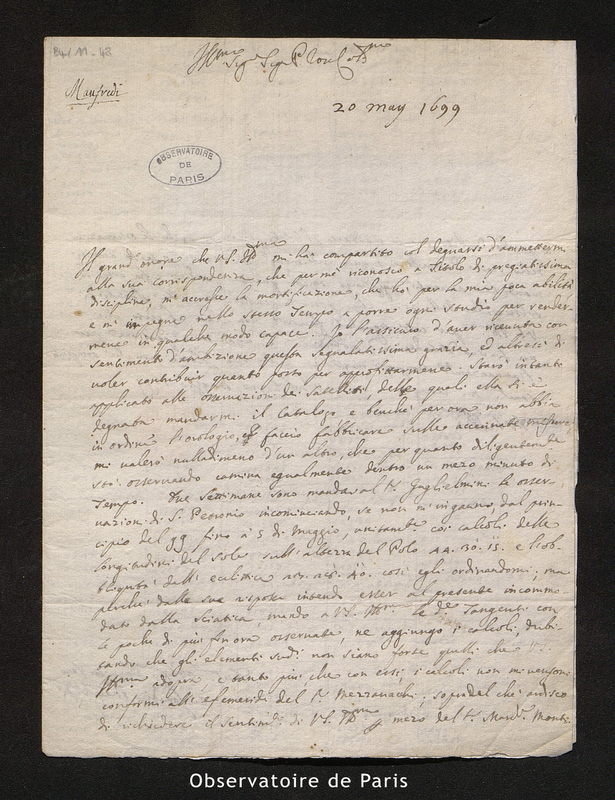 84/11-48
Ill.mo Sig.r Sig.r P.ron Col.mo
Manfredi
20 may 1699
OBSERVATOIRE
DE
PARIS
Il grand'onore che V.S. Ill.ma mi hà compartito col degnarsi d'ammettermi
alla sua corrispondenza, che per mè riconosco a titolo di pregiatissima
disciplina, mi accresce la mortificazione, che hò per la mia poca abilità
e mi impegna nello stesso tempo a porre ogni studio per render-
mene in qualche modo capace. Io l'assicuro d'aver ricevuta con
sentimento d'ambizione questa segnalatissima grazia, ed altresì di
voler contribuir quanto posso per approfittarmene. Starò intanto
applicato alle osservazioni de' Satelliti, delle quali ella si è
degnata mandarmi il Catalogo e benchè per ora non abbia
in ordine l'orologio, che faccio fabbricare sulle accennate misure
mi valerò nulladimeno d'un altro, che per quanto diligentemente
stò osservando camina egualmente dentro un mezo minuto di
Tempo. Tre settimane sono mandai al S. Guglielmini le osser-
vazioni di S. Petronio incominciando, se non m'inganno, dal prin-
cipio del 99 fino a 5 di Maggio, unitamte coi calcoli delle
longitudini del Sole sull'altezza del Polo 44. 30. 15. e l'ob-
bliquità dell'eclittica così egli ordinandomi; ma
perchè dalla sua risposta intendo esser al presente incommo-
dato dalla Sciatica, mando a V.S. Ill.ma le d.e Tangenti con
le poche di più finora osservate, ne aggiungo i calcoli, dubi-
tando che gli elementi sud.i non siano forse quelli che V.S.
Ill.ma adopra e tanto più che con essi i calcoli non mi vengono
conformi all'efemeridi del S. Mezzavachi; sopra del che ardisco
di richiedere il sentim.to di V.S. Ill.ma p mezo del S. March. Monti
Observatoire de Paris